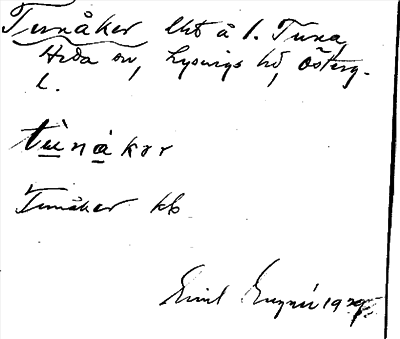 Tunåker lht å l. Tuna,
Heda sn, Lysings hd, Österg.
l.
tu̲nå̲kər
Tunåker kb
Emil